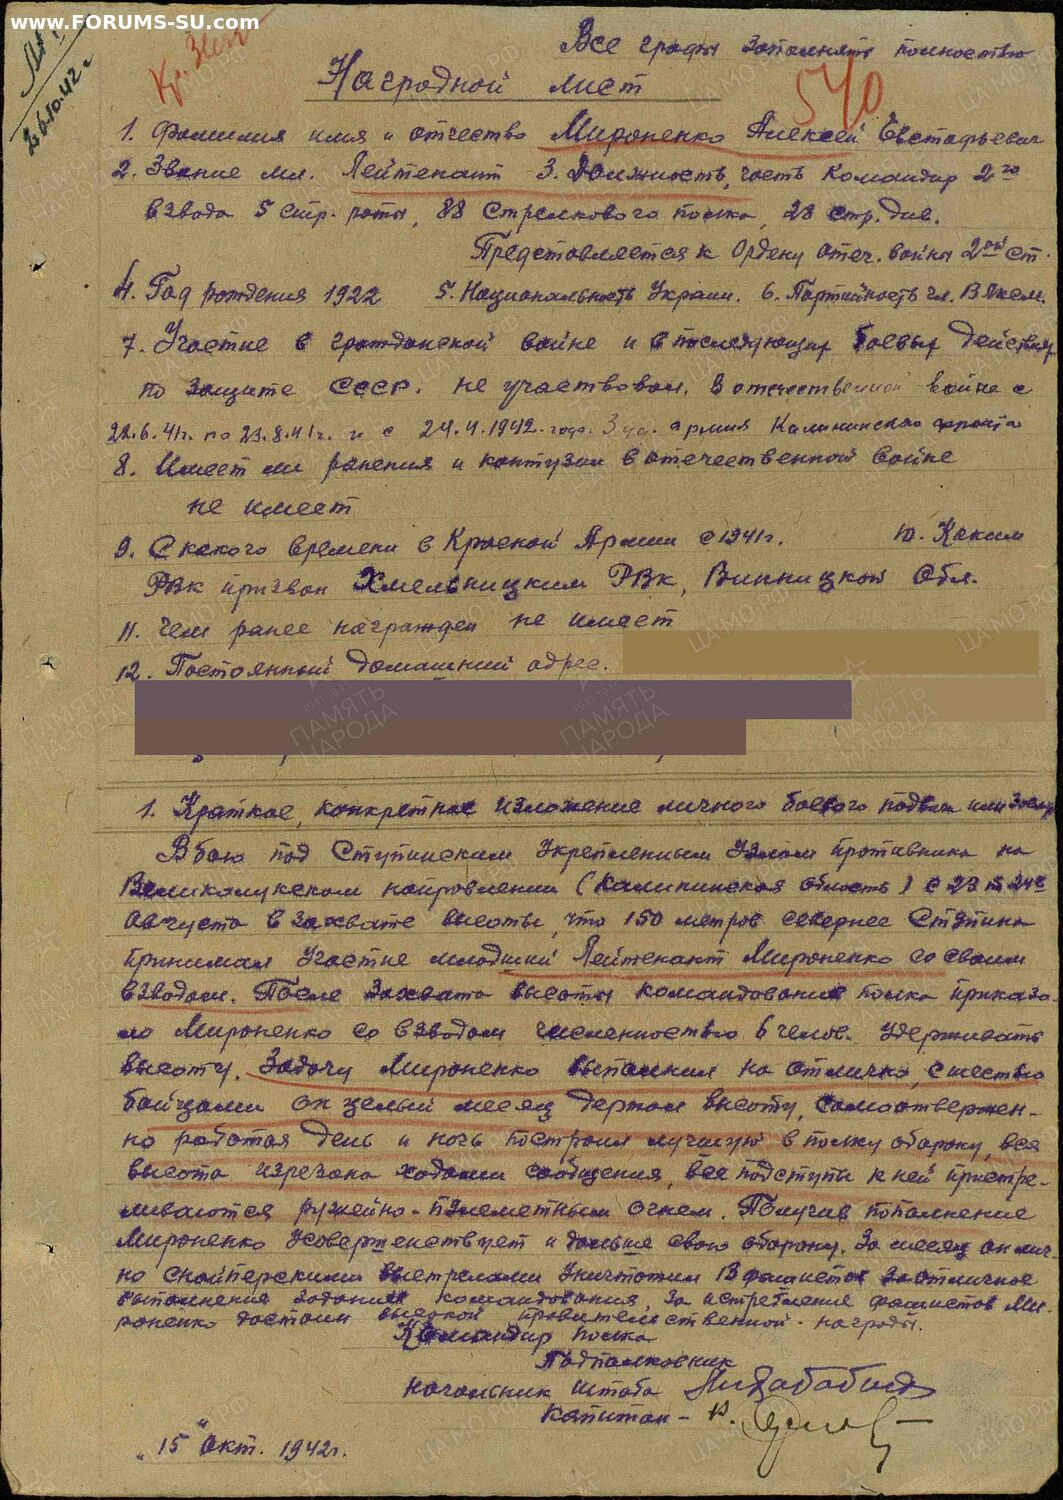 www.FORUMS-SU.com
26.10.42 г
Кр. Звез
Все графы заполнять полностью
Наградной лист
540
1. Фамилия имя и отчество Мироненко Алексей Евстафьевич
2. Звание мл. Лейтенант 3. Должность, часть Командир 2го
взвода 5 стр. роты, 88 Стрелкового полка, 28 стр. див.
Представляется к Ордену Отеч. войны 2ой ст.
4. Год рождения 1922 5. Националность Украин. 6. Партийность чл. ВЛКСМ.
7. Участие в гражданской войне и в последующих боевых действиях
по защите СССР. не участвовал. В отечественной войне с
22.6.41г. по 23.8.41г. и с 24.4.1942 года. 3 уд. армия Калининского фронта
8. Имеет ли ранения и контузии в отечественной войне
не имеет
9. С какого времени в Красной Армии с 1941г. 10. Каким
РВК призван Хмельницким РВК, Винницкой Обл.
11. Чем ранее награжден не имеет
12. Постоянный домашний адрес.
ПАМЯТЬ НАРОДА
1. Краткое, конкретное изложение личного боевого подвига или заслуг
В бою под Ступинским Укрепленным Узлом противника на
Великолукском направлении (Калининская область) с 23 на 24е
Августа в захвате высоты, что 150 метров севернее Ступина
принимал Участие младший Лейтенант Мироненко со своим
взводом. После захвата высоты командование полка приказа-
ло Мироненко со взводом численностью 6 челов. удерживать
высоту. Задачу Мироненко выполнил на отлично, с шестью
бойцами он целый месяц держал высоту, самоотвержен-
но работая день и ночь построил лучшую в полку оборону, вся
высота изрезана ходами сообщения, все подступы к ней пристре-
ливаются ружейно-пулеметным огнем. Получив пополнение
Мироненко Усовершенствует и дальше свою оборону. За месяц он лич-
но снайперскими выстрелами Уничтожил 13 фашистов за отличное
выполнение задания командования, за истребление фашистов Ми-
роненко достоин высокой правительственной награды.
Командир полка
Подполковник
Начальник штаба
Капитан -
"15" окт. 1942г.